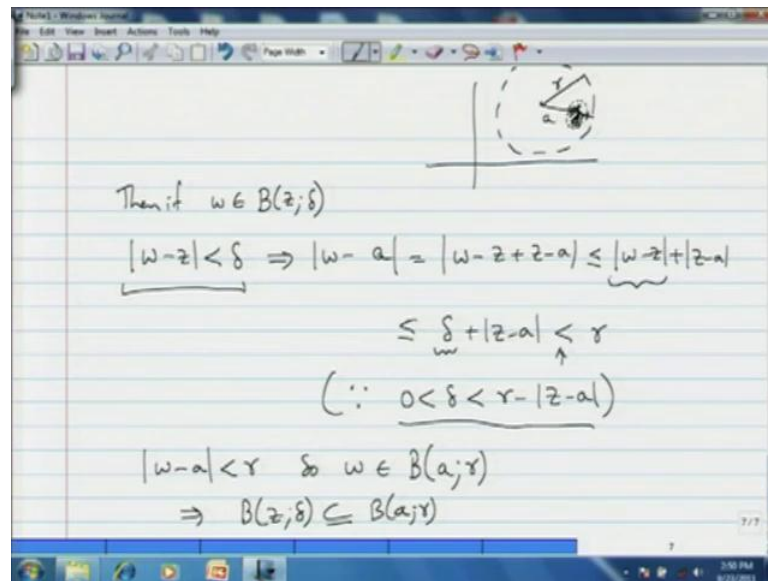 Note1 - Windows Journal
File Edit View Insert Actions Tools Help
Page Width
r
a
Then if w ∈ B(z;δ)
|w-z| < δ ⇒ |w- a| = |w-z+z-a| ≤ |w-z|+|z-a|
≤ δ+|z-a| < r
(∵ 0<δ<r-|z-a|)
|w-a|<r so w ∈ B(a;r)
⇒ B(z;δ) ⊆ B(a;r)
7/7
7
2:50 PM